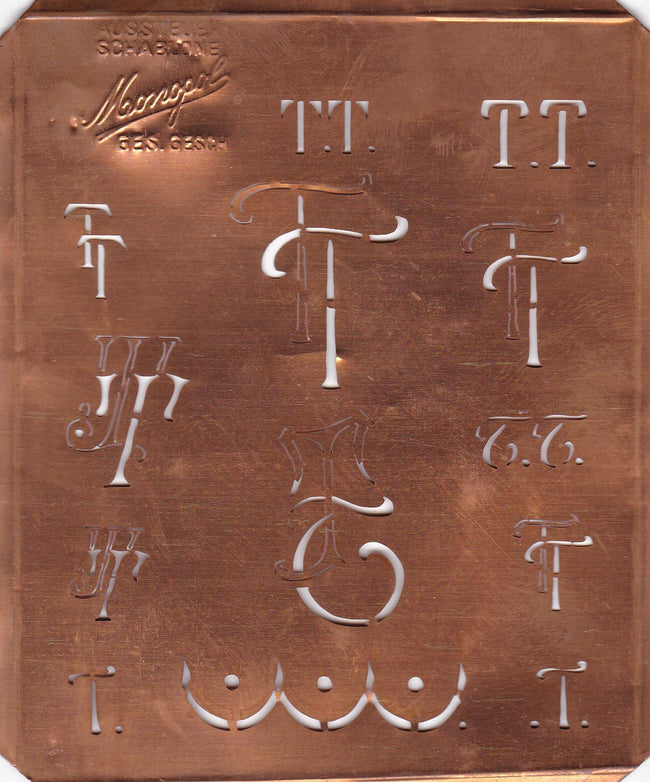 AUSSTEUER
SCHABLONE
Monopol
GES. GESCH
T.T.
T.T.
TT
TT
TT
TT
T.T.
TT
TT
TT
T.
.T.